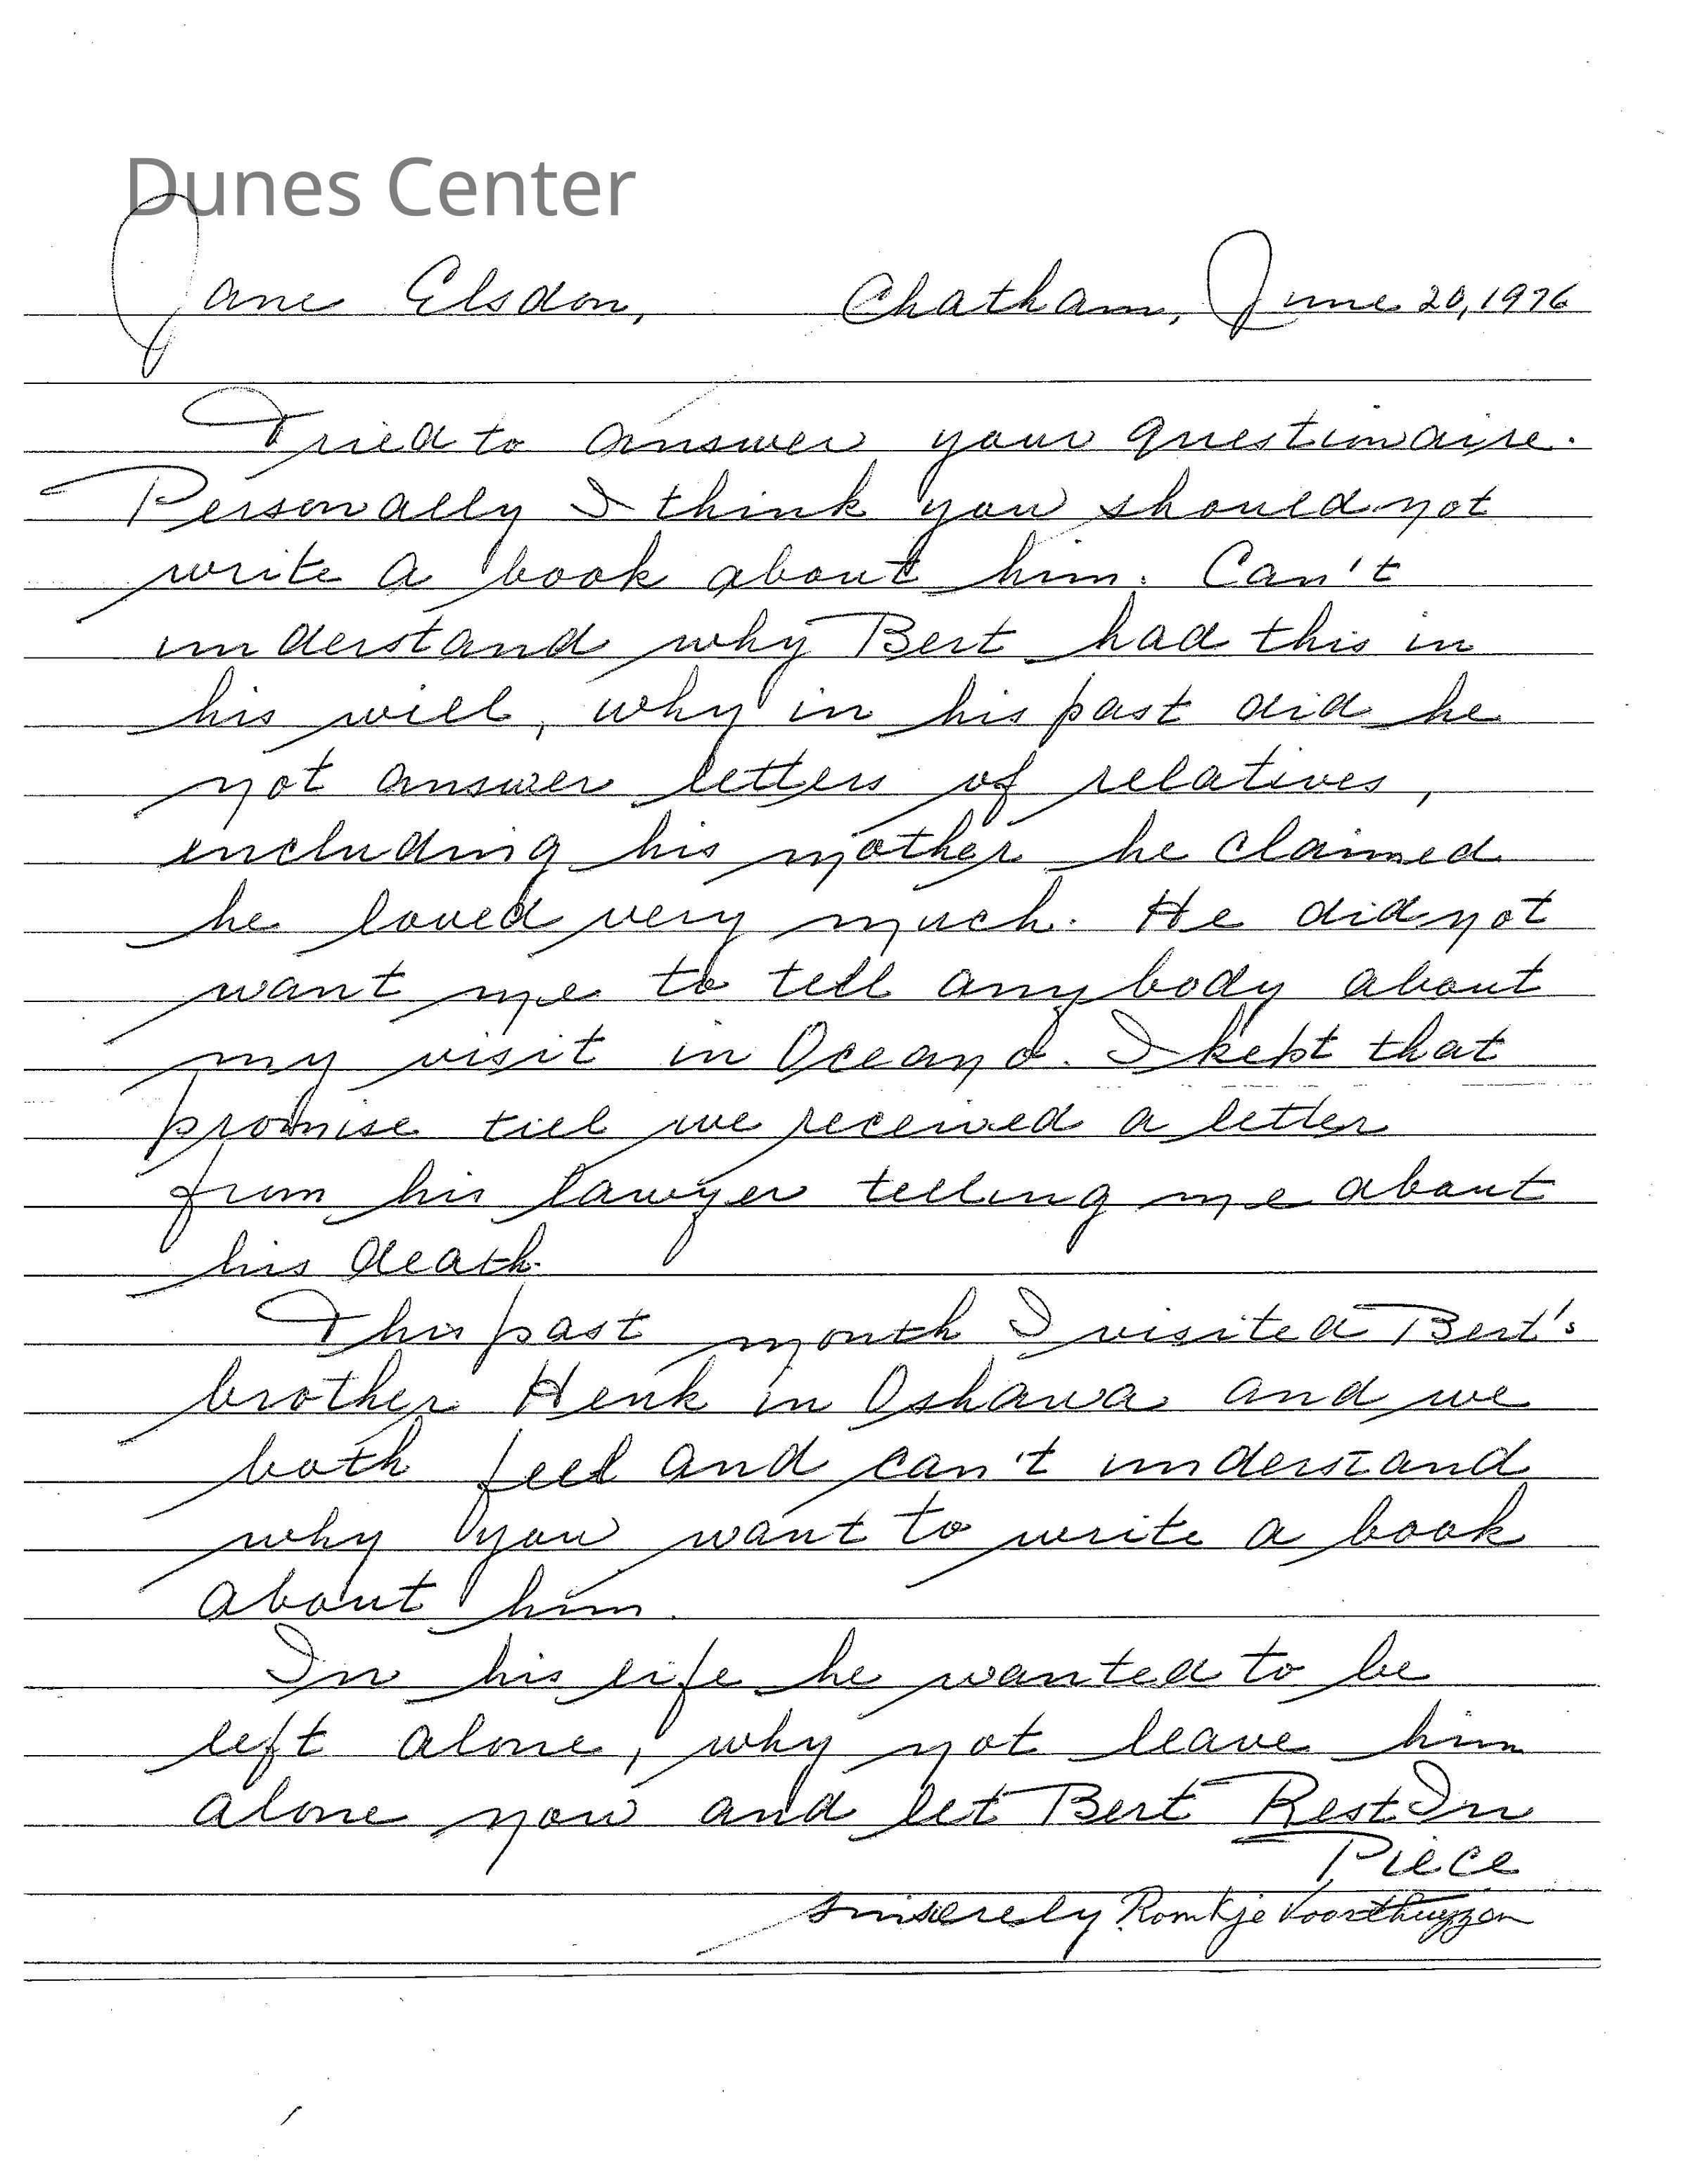 Dunes Center
Jane Elsdon, Chatham, June 20, 1976
Tried to answer your questionaire.
Personally I think you should not
write a book about him. Can't
understand why Bert had this in
his will, why in his past did he
not answer letters of relatives,
encluding his mother he claimed
he loved very much. He did not
want me to tell anybody about
my visit in Oceano. I kept that
promise till we received a letter
from his lawyer telling me about
his death.
This past month I visited Bert's
brother Henk in Oshawa and we
both feel and can't understand
why you want to write a book
about him.
In his life he wanted to be
left alone, why not leave him
alone now and let Bert Rest In
Piece
sinserely Romkje Voorthuyzen